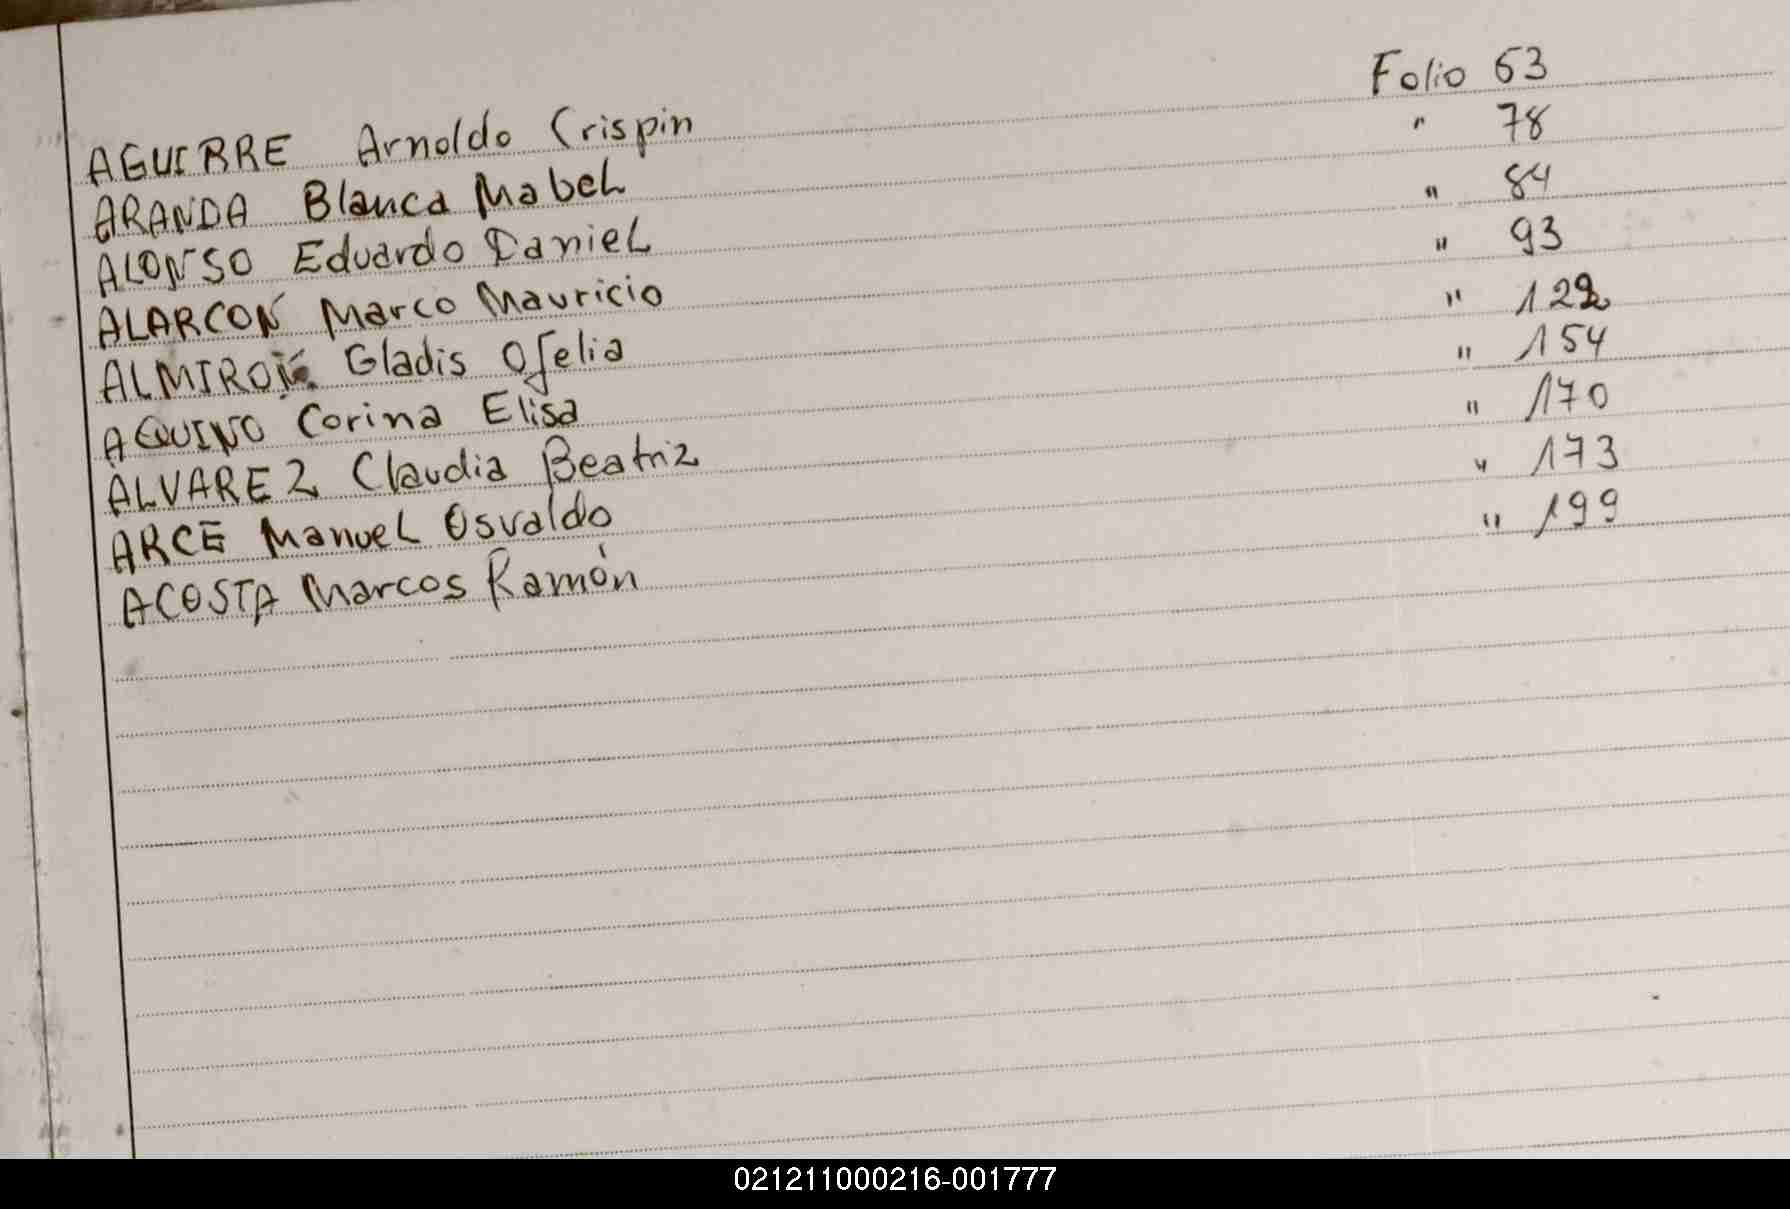 AGUIRRE Arnoldo Crispin Folio 63
ARANDA Blanca Mabel " 78
ALONSO Eduardo Daniel " 84
ALARCON Marco Mauricio " 93
ALMIRON Gladis Ofelia " 122
AQUINO Corina Elisa " 154
ALVAREZ Claudia Beatriz " 170
ARCE Manuel Osvaldo " 173
ACOSTA Marcos Ramón " 199
021211000216-001777